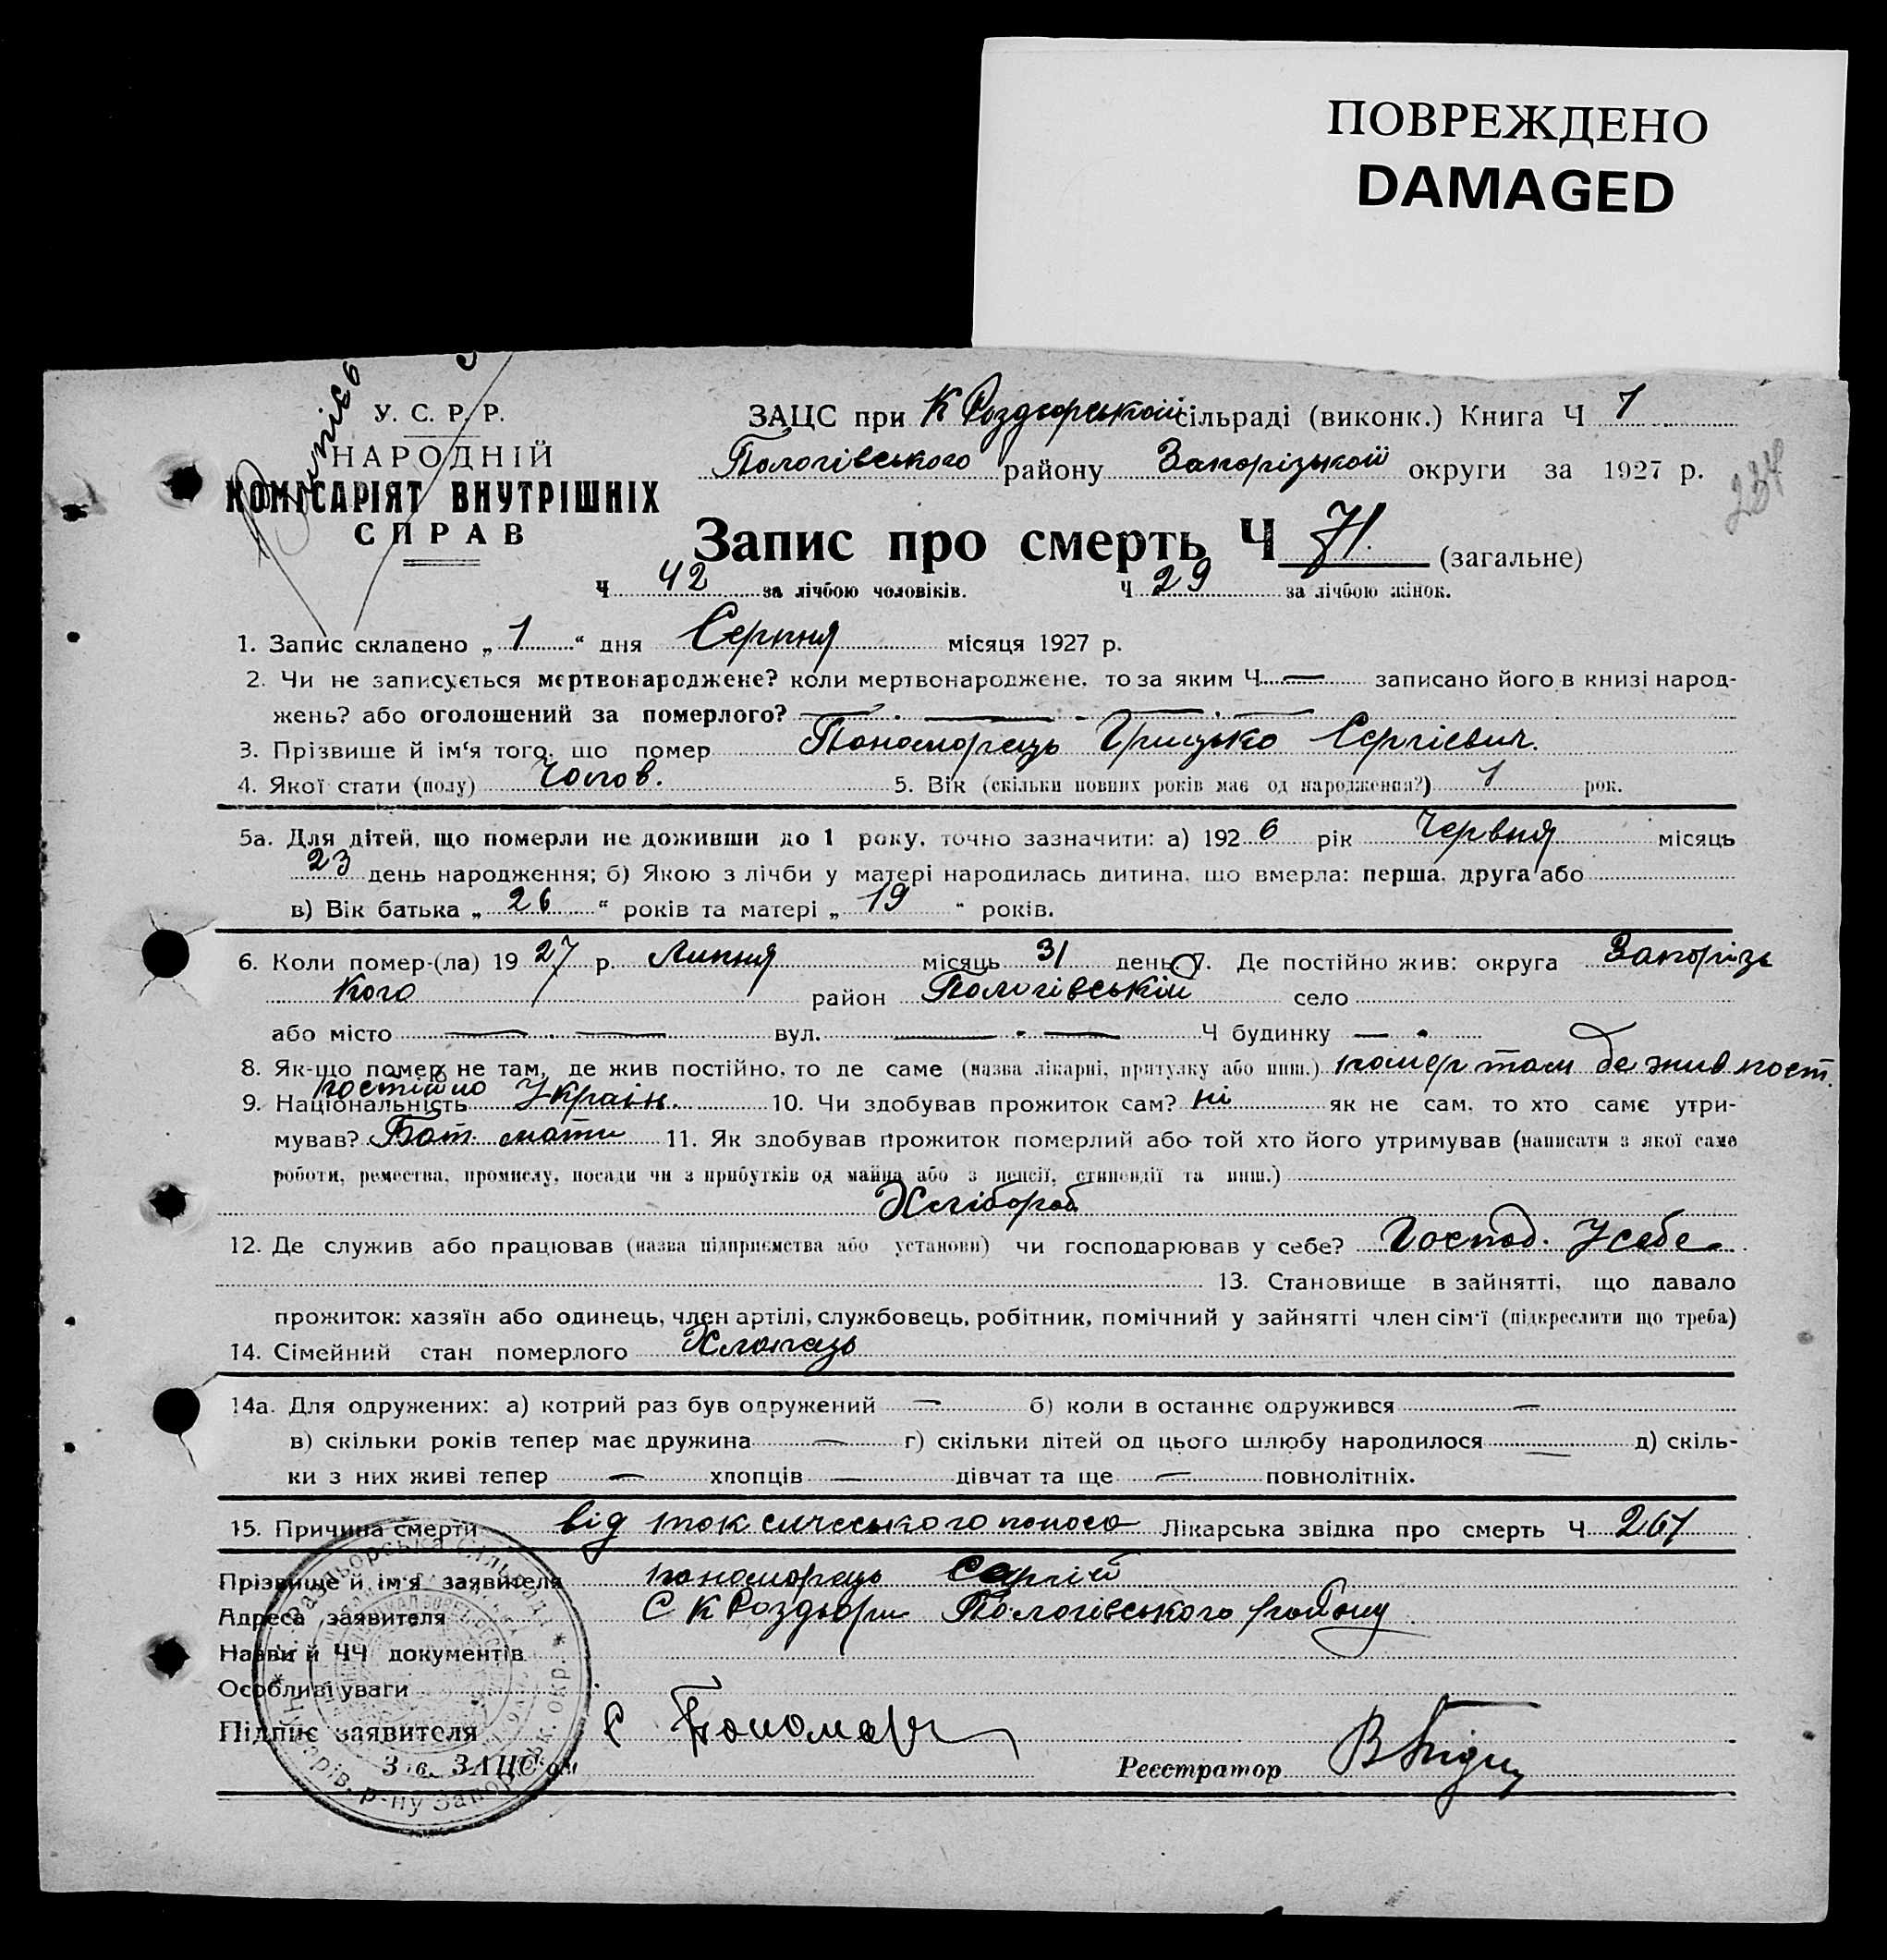 ПОВРЕЖДЕНО
DAMAGED
У. С. Р. Р.
НАРОДНІЙ
КОМІСАРІЯТ ВНУТРІШНІХ
СПРАВ
ЗАЦС при К Роздорській сільраді (виконк.) Книга Ч 1
Пологівського району Запорізької округи за 1927 р.
234
Запис про смерть Ч 71. (загальне)
Ч 42 за лічбою чоловіків. Ч 29 за лічбою жінок.
1. Запис складено „ 1 “ дня Серпня місяця 1927 р.
2. Чи не записується мертвонароджене? коли мертвонароджене, то за яким Ч — записано його в книзі народ-
жень? або оголошений за померлого? — . — - — . —
3. Прізвище й ім‘я того, що помер Пономорець Грицько Сергієвич.
4. Якої стати (полу) Чолов. 5. Вік (скільки повних років має од народження?) 1 рок.
5а. Для дітей, що померли не доживши до 1 року, точно зазначити: а) 1926 рік Червня місяць
23 день народження; б) Якою з лічби у матері народилась дитина, що вмерла: перша, друга або
в) Вік батька „ 26 “ років та матері „ 19 “ років.
6. Коли помер-(ла) 1927 р. Липня місяць 31 день 7. Де постійно жив: округа Запорізь
кого район Пологівський село
або місто — . — вул. — . — Ч будинку — .
8. Як-що помер не там, де жив постійно, то де саме (назва лікарні, притулку або инш.) помер там де жив пост.
постійно
9. Національність Україн. 10. Чи здобував прожиток сам? ні як не сам, то хто саме утри-
мував? Бат. мати 11. Як здобував прожиток померлий або той хто його утримував (написати з якої саме
роботи, ремества, промислу, посади чи з прибутків од майна або з пенсії, стипендії та инш.)
Хлібороб
12. Де служив або працював (назва підприємства або установи) чи господарював у себе? Господ. У себе
13. Становище в зайнятті, що давало
прожиток: хазяїн або одинець, член артілі, службовець, робітник, помічний у зайнятті член сім‘ї (підкреслити що треба)
14. Сімейний стан померлого Хлопець
14а. Для одружених: а) котрий раз був одружений — б) коли в останнє одружився —
в) скільки років тепер має дружина — г) скільки дітей од цього шлюбу народилося — д) скіль-
ки з них живі тепер — хлопців — дівчат та ще — повнолітніх.
15. Причина смерти від токсичеського поноса Лікарська звідка про смерть Ч 267
Прізвище й ім‘я заявителя пономорець Сергій
Адреса заявителя С К Роздори Пологівського району
Назви й ЧЧ документів
Особливі уваги
Підпис заявителя С Пономар
Зав. ЗАЦС‘ом Реєстратор